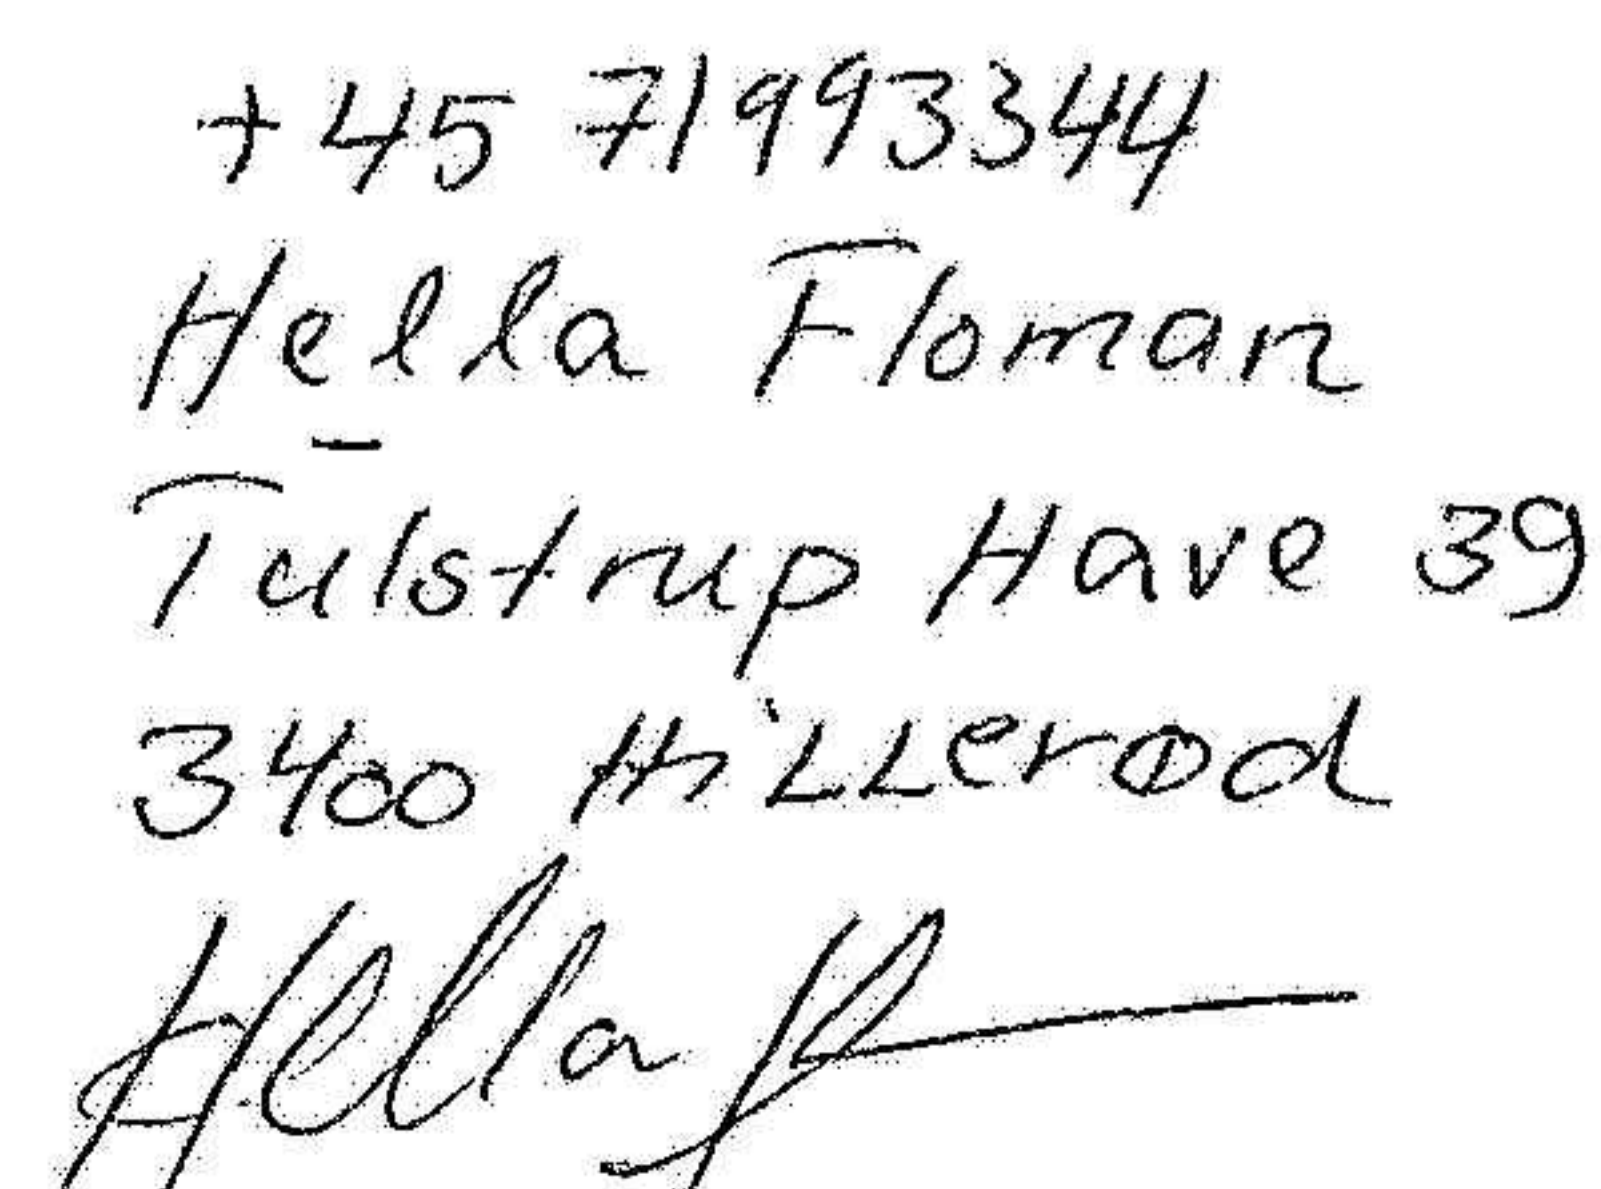 +45 71993344
Hella Floman
Tulstrup Have 39
3400 Hillerød
Hella